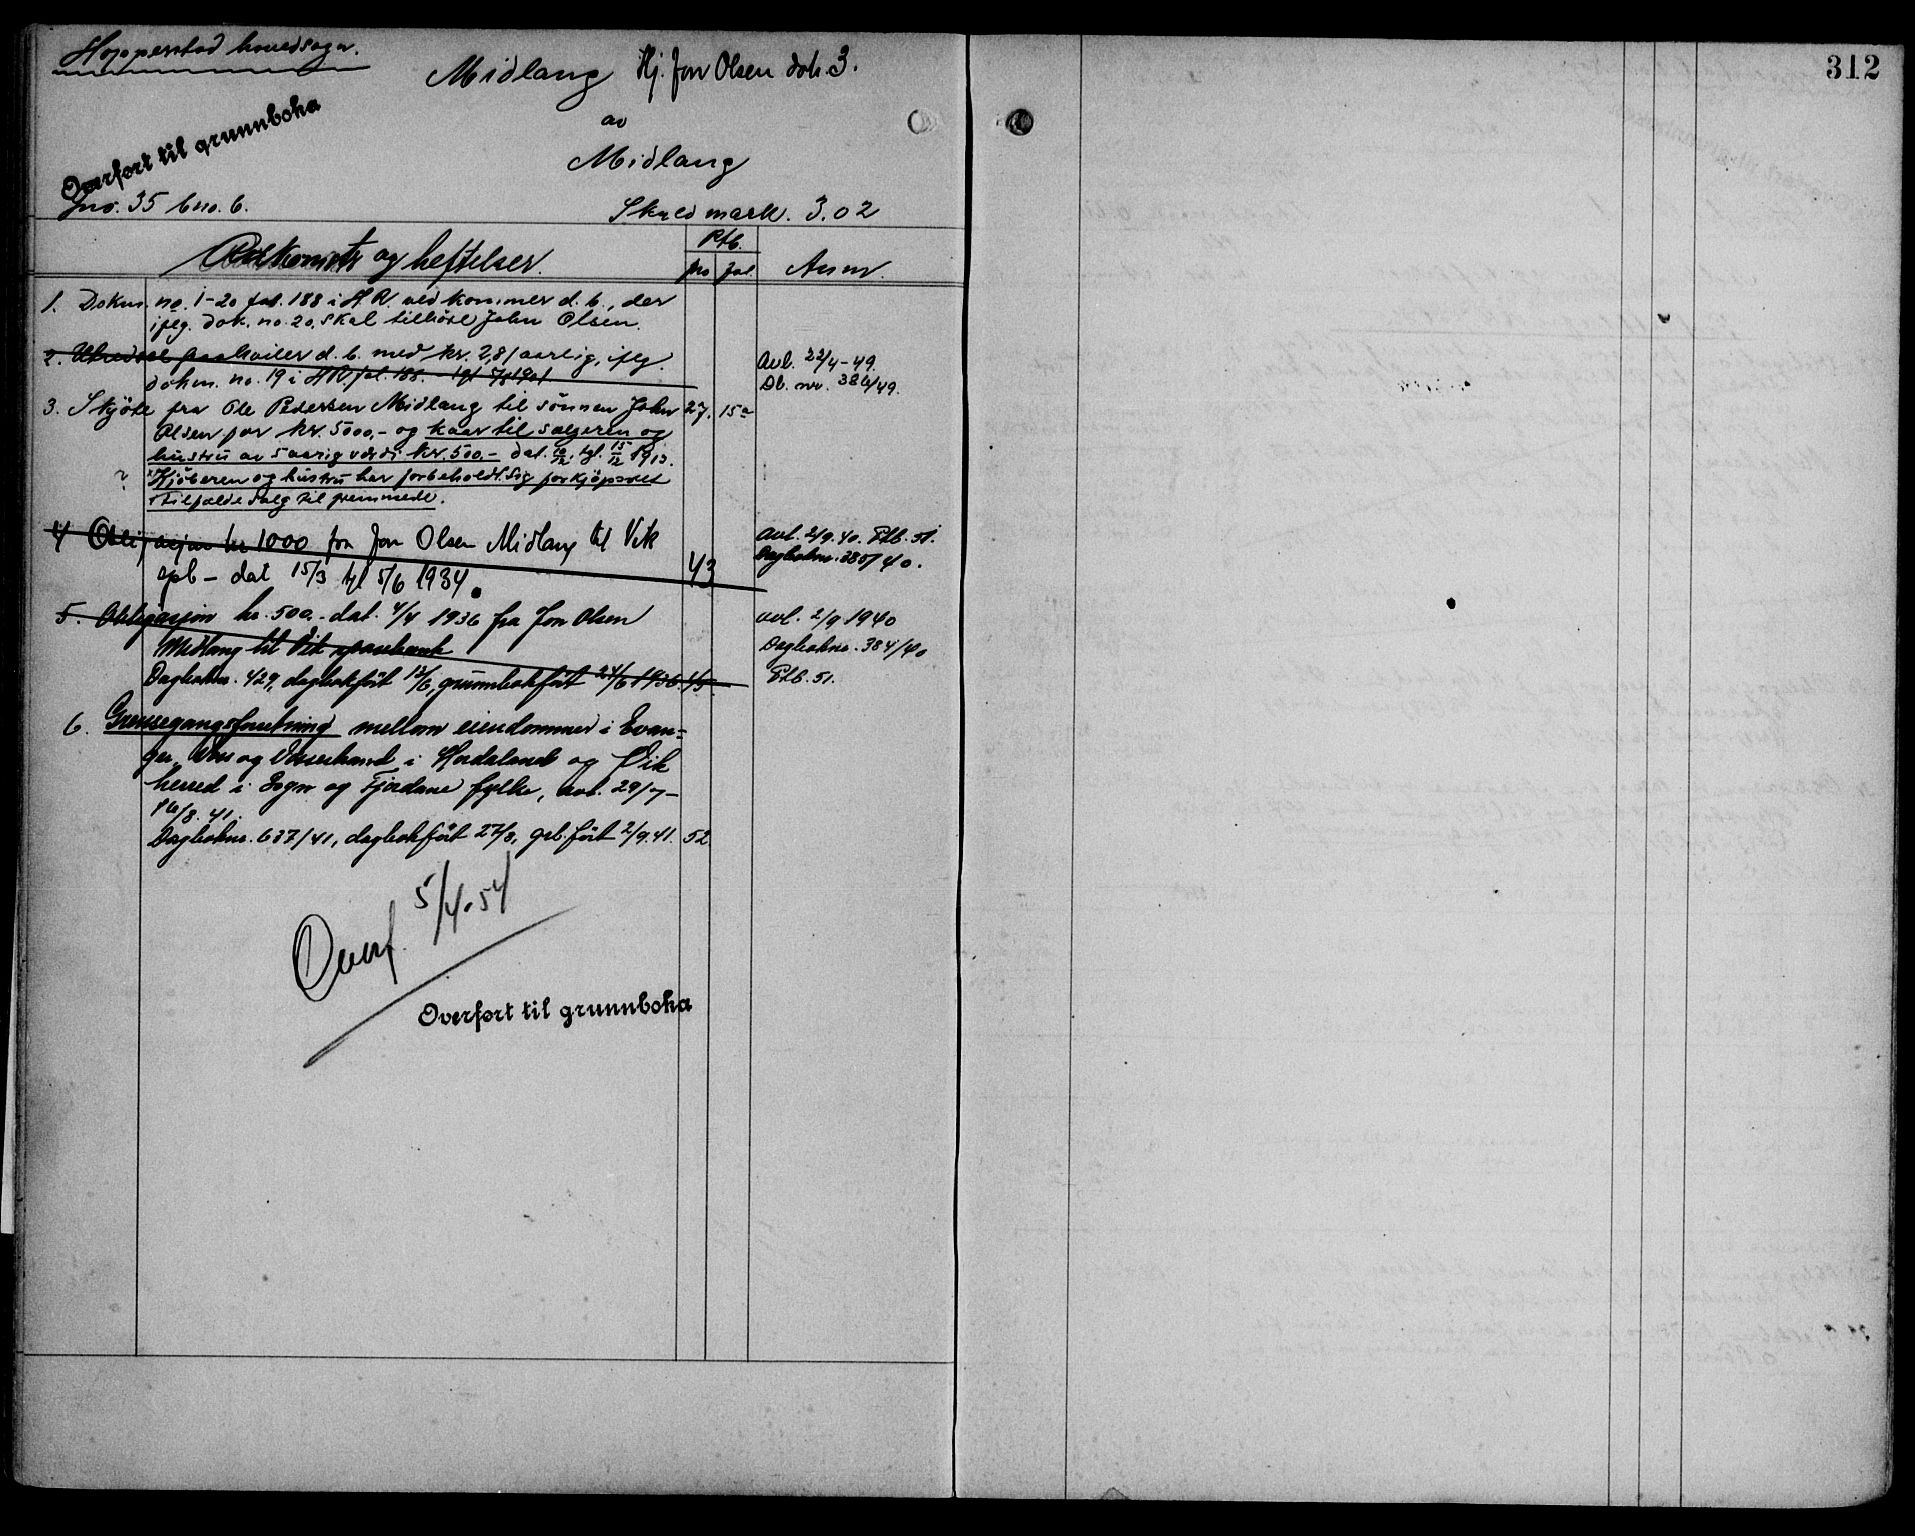 Hopperstad hovedsogn.
Midlang Hj. Jon Olsen dok 3.
av
Midlang
Overført til grunnboka
Gno. 35 bno. 6.
Skyld mark. 3.02
Adkomst og heftelser.
Ptb.
no fol.
Anm.
1. Dokum. no. 1-20 fol. 188 i H.R. vedkommer d. b., der
iflg. dok. no. 20, skal tilhöre John Olsen.
2. paahviler d. b. med kr. 2,81 aarlig, iflg.
dokm. no. 19 i H R fol. 188.
Avl. 22/4-49.
Db. nr. 386/49.
3. Skjöte fra Ole Pedersen Midlang til sönnen John 27. 15a
Olsen for kr. 5000,- og kaar til sælgeren og
hustru av 5 aarig værdi kr. 500.- dat. tgl. 15/12 1913.
? Kjöberen og hustru har forbeholdt sig forkjöpsret
i tilfælde salg til fremmede.
4 Obligasjon kr 1000 fra Jon Olsen Midlang til Vik
spb - dat 15/3 tgl 5/6 1934. 43
Avl. 2/9. 40. Ptb. 51.
Dagboknr. 385/40.
5. Obligasjon kr. 500.- dat. 4/4 1936 fra Jon Olsen
Midlang til Vik sparebank
Dagboknr. 429, dagbokfört 12/6, grunnbokfört 24/6 1936. 45.
avl. 2/9 1940
Dagboknr. 384/40
Ptb. 51.
6. Grensegangsforretning mellom eiendommer i Evan-
ger, Voss og Vossestrand i Hordaland og Vik
herred i Sogn og Fjordane fylke, avh. 29/7-
16/8. 41.
Dagboknr. 637/41, dagbokfört 27/8, grb. fört 2/9. 41. 52
Overf. 5/4. 54
Overført til grunnboka
312